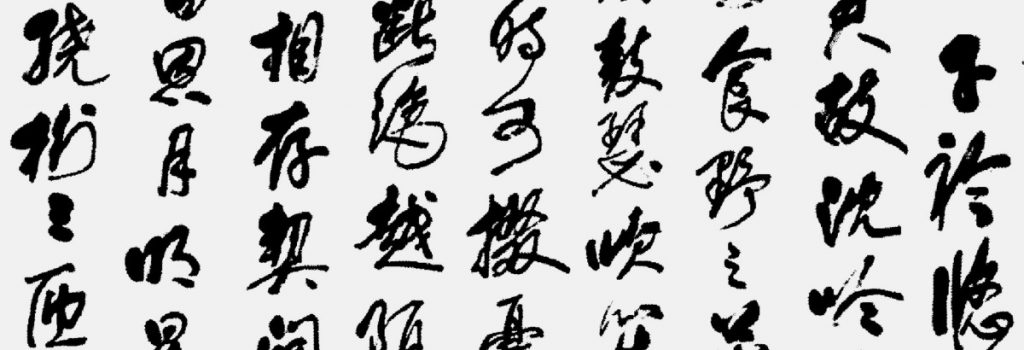 子衿悠
故沈吟
食野之
鼓瑟吹笙
時可掇憂
斷絶越陌
相存契闊
恩月明星
繞樹三匝